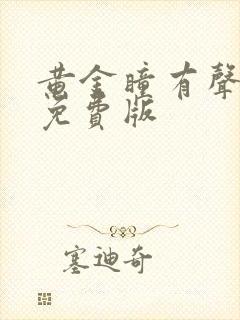 黄金瞳有聲
免費版
塞迪奇